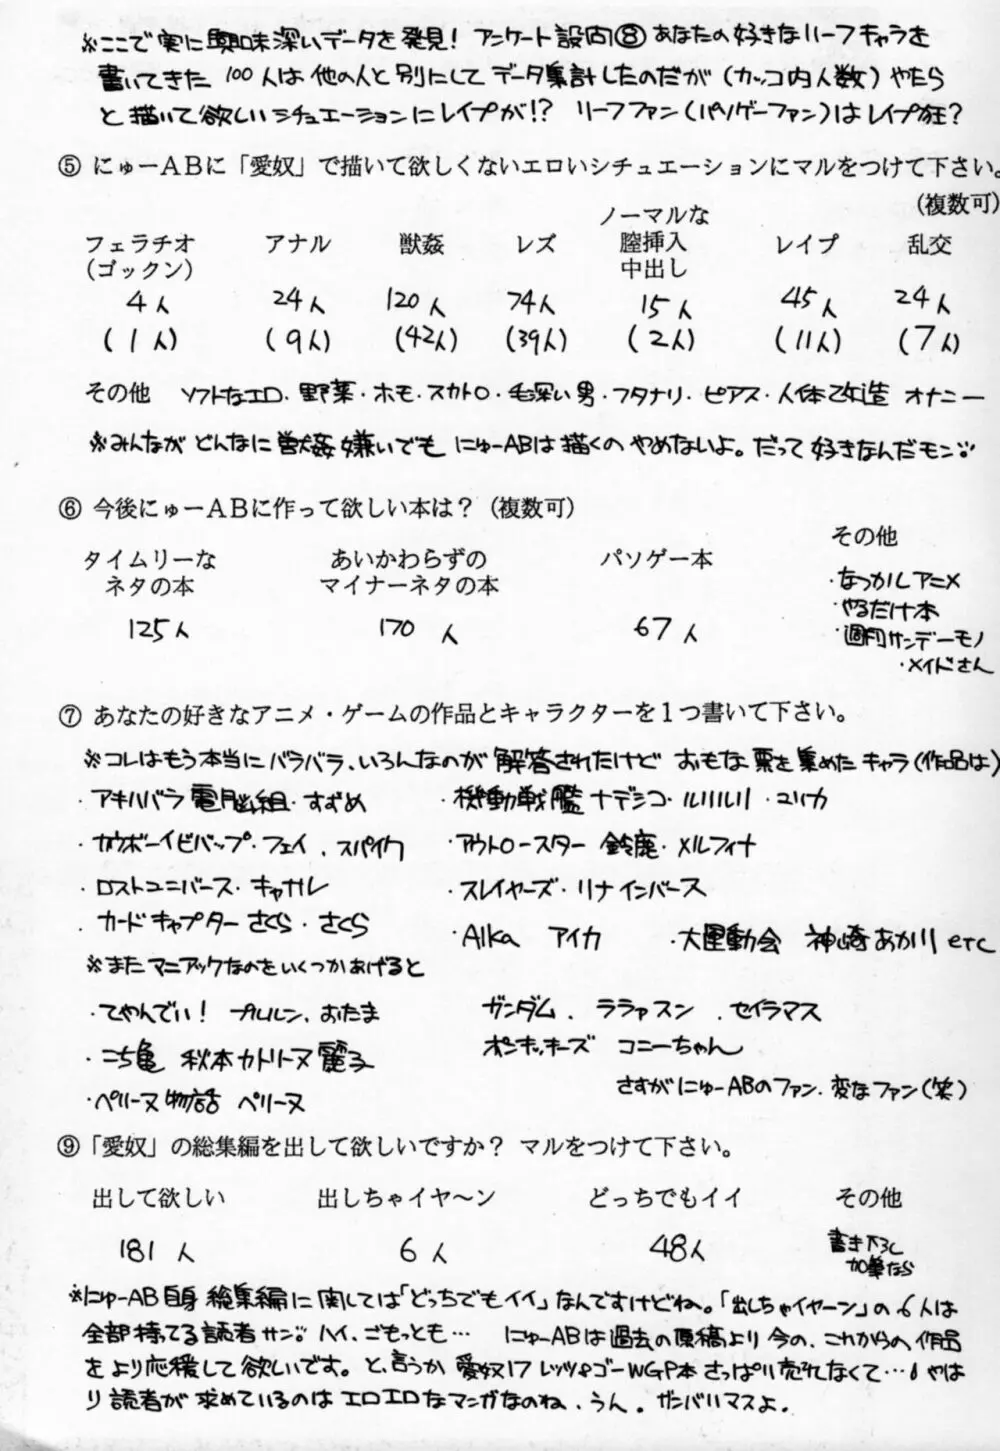 ※ここで実に興味深いデータを発見! アンケート設問⑧あなたの好きなリーフキャラを
書いてきた100人は他の人と別にしてデータ集計したのだが(カッコ内人数)やたら
と描いて欲しいシチュエーションにレイプが!? リーフファン(パソゲーファン)はレイプ狂?
⑤ にゅーABに「愛奴」で描いて欲しくないエロいシチュエーションにマルをつけて下さい。
(複数可)
フェラチオ(ゴックン) アナル 獣姦 レズ ノーマルな膣挿入中出し レイプ 乱交
4人 24人 120人 74人 15人 45人 24人
(1人) (9人) (42人) (39人) (2人) (11人) (7人)
その他 ソフトなエロ・野薬・ホモ・スカトロ・毛深い男・フタナリ・ピアス・人体改造 オナニー
※みんながどんなに獣姦嫌いでも にゅーABは描くのやめないよ。だって好きなんだモン。
⑥ 今後にゅーABに作って欲しい本は?(複数可)
タイムリーなネタの本 あいかわらずのマイナーネタの本 パソゲー本 その他
125人 170人 67人
・なつかしアニメ
・やるだけ本
・週刊サンデーモノ
・メイドさん
⑦ あなたの好きなアニメ・ゲームの作品とキャラクターを1つ書いて下さい。
※コレはもう本当にバラバラ、いろんなのが解答されたけど おもな票を集めたキャラ(作品は)
・アキハバラ電脳組・すずめ ・機動戦艦ナデシコ・ルリルリ・ユリカ
・カウボーイビバップ・フェイ、スパイク ・アウトロースター 鈴鹿・メルフィナ
・ロストユニバース・キャナル ・スレイヤーズ・リナインバース
・カードキャプターさくら・さくら ・AIka アイカ ・大運動会 神崎あかり etc
※またマニアックなのをいくつかあげると
・てやんでい! プルルン、おたま ガンダム、ララァスン、セイラマス
・こち亀 秋本カトリーヌ麗子 ポンキッキーズ コニーちゃん
・ペリーヌ物語 ペリーヌ さすがにゅーABのファン、変なファン(笑)
⑨「愛奴」の総集編を出して欲しいですか? マルをつけて下さい。
出して欲しい 出しちゃイヤ〜ン どっちでもイイ その他
181人 6人 48人 書き下ろし加筆なら
※にゅーAB自身 総集編に関しては「どっちでもイイ」なんですけどね。「出しちゃイヤーン」の6人は
全部持てる読者サン。ハイ、ごもっとも… にゅーABは過去の原稿より今の、これからの作品
をより応援して欲しいです。と、言うか 愛奴17 レッツ&ゴーWGP本さっぱり売れなくて…。やは
り読者が求めているのはエロエロなマンガなのね、うん。ガンバリマスよ。